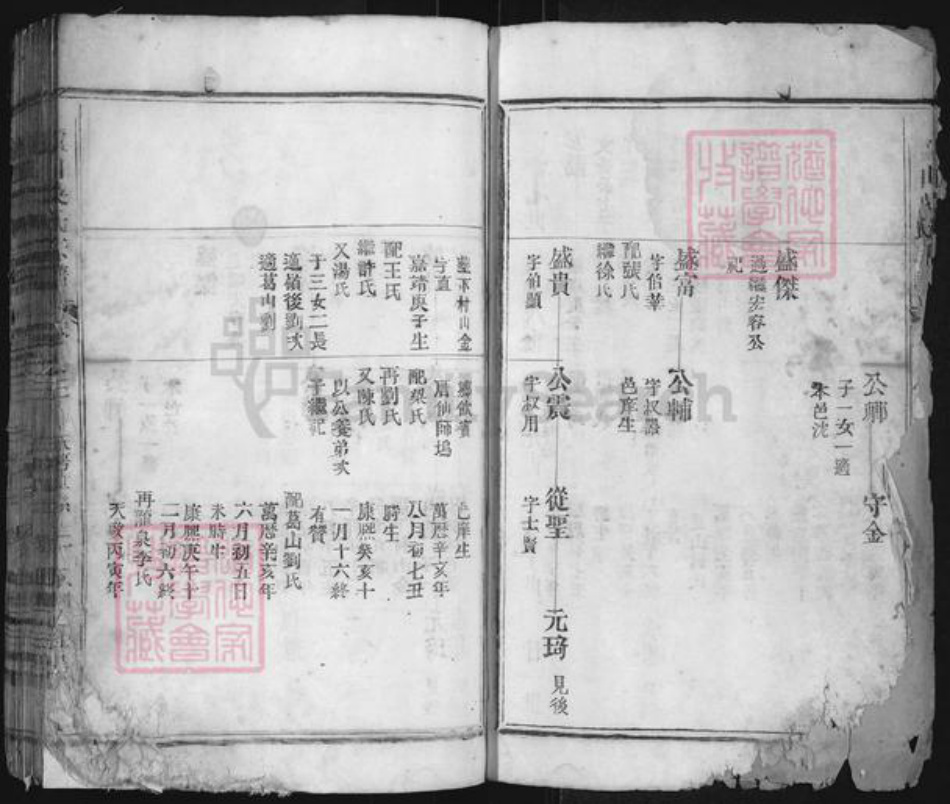 公卿
子一女一適
本邑沈
守金
盛傑
過繼宏容公
祀
盛富
字伯華
配張氏
繼徐氏
公輔
字叔器
邑庠生
盛貴
字伯顯
公震
字叔用
從聖
字士賢
元琦 見後
字直
嘉靖庚子生
配王氏
繼許氏
又湯氏
子三女二長
適嶺後劉次
適葛山劉
鄉飲賓
居仙師塢
配張氏
再劉氏
又陳氏
以公養弟次
子繼祀
邑庠生
萬曆辛亥年
八月初七丑
時生
康熙癸亥十
一月十六終
有贊
配葛山劉氏
萬曆辛亥年
六月初五日
未時生
康熙庚午十
二月初六終
再醴泉李氏
天啟丙寅年